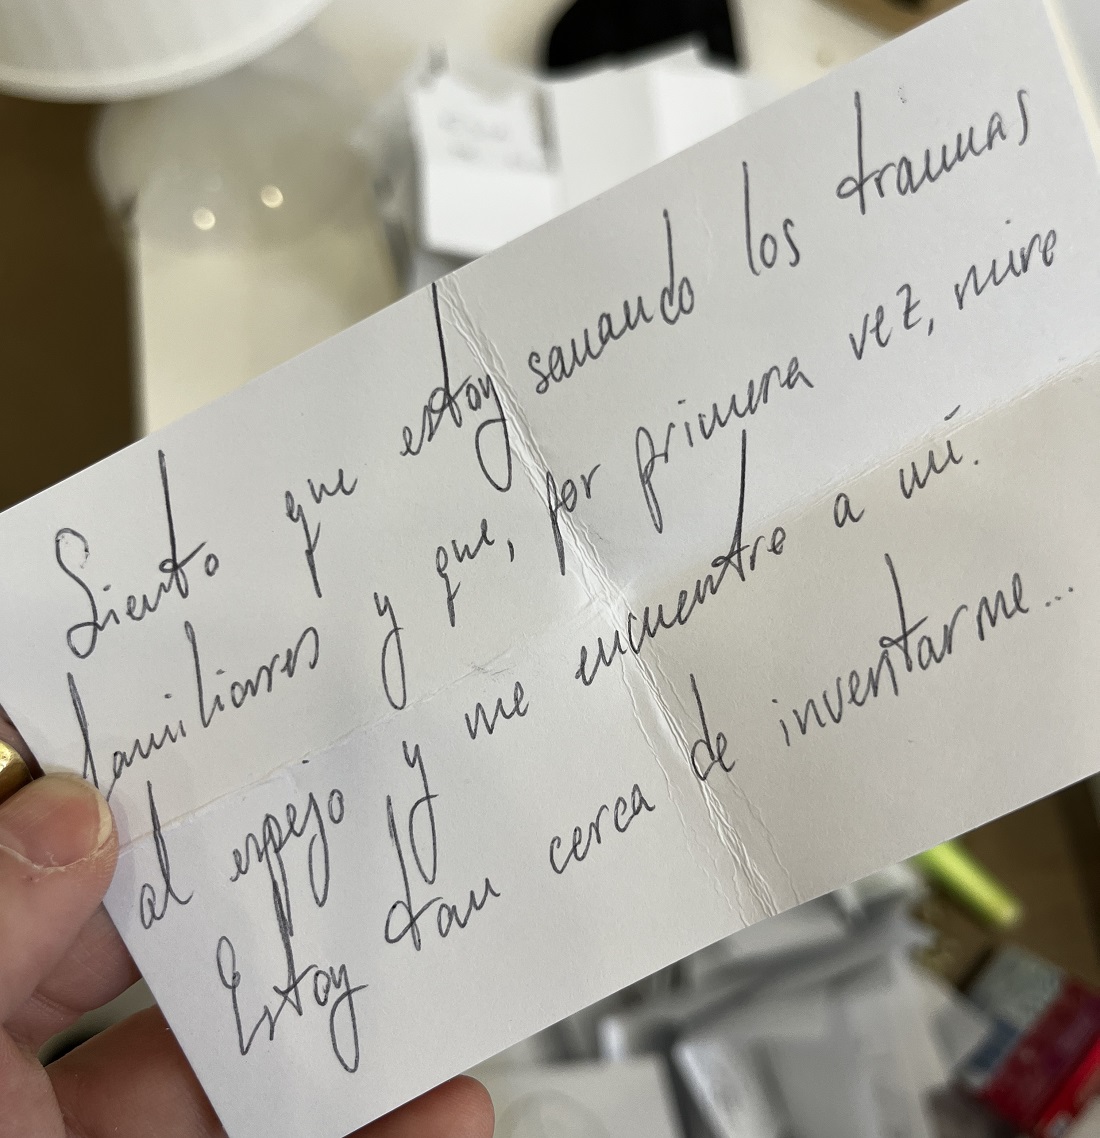 Siento que estoy sanando los traumas
familiares y que, por primera vez, mire
al espejo y me encuentre a mí.
Estoy tan cerca de inventarme...